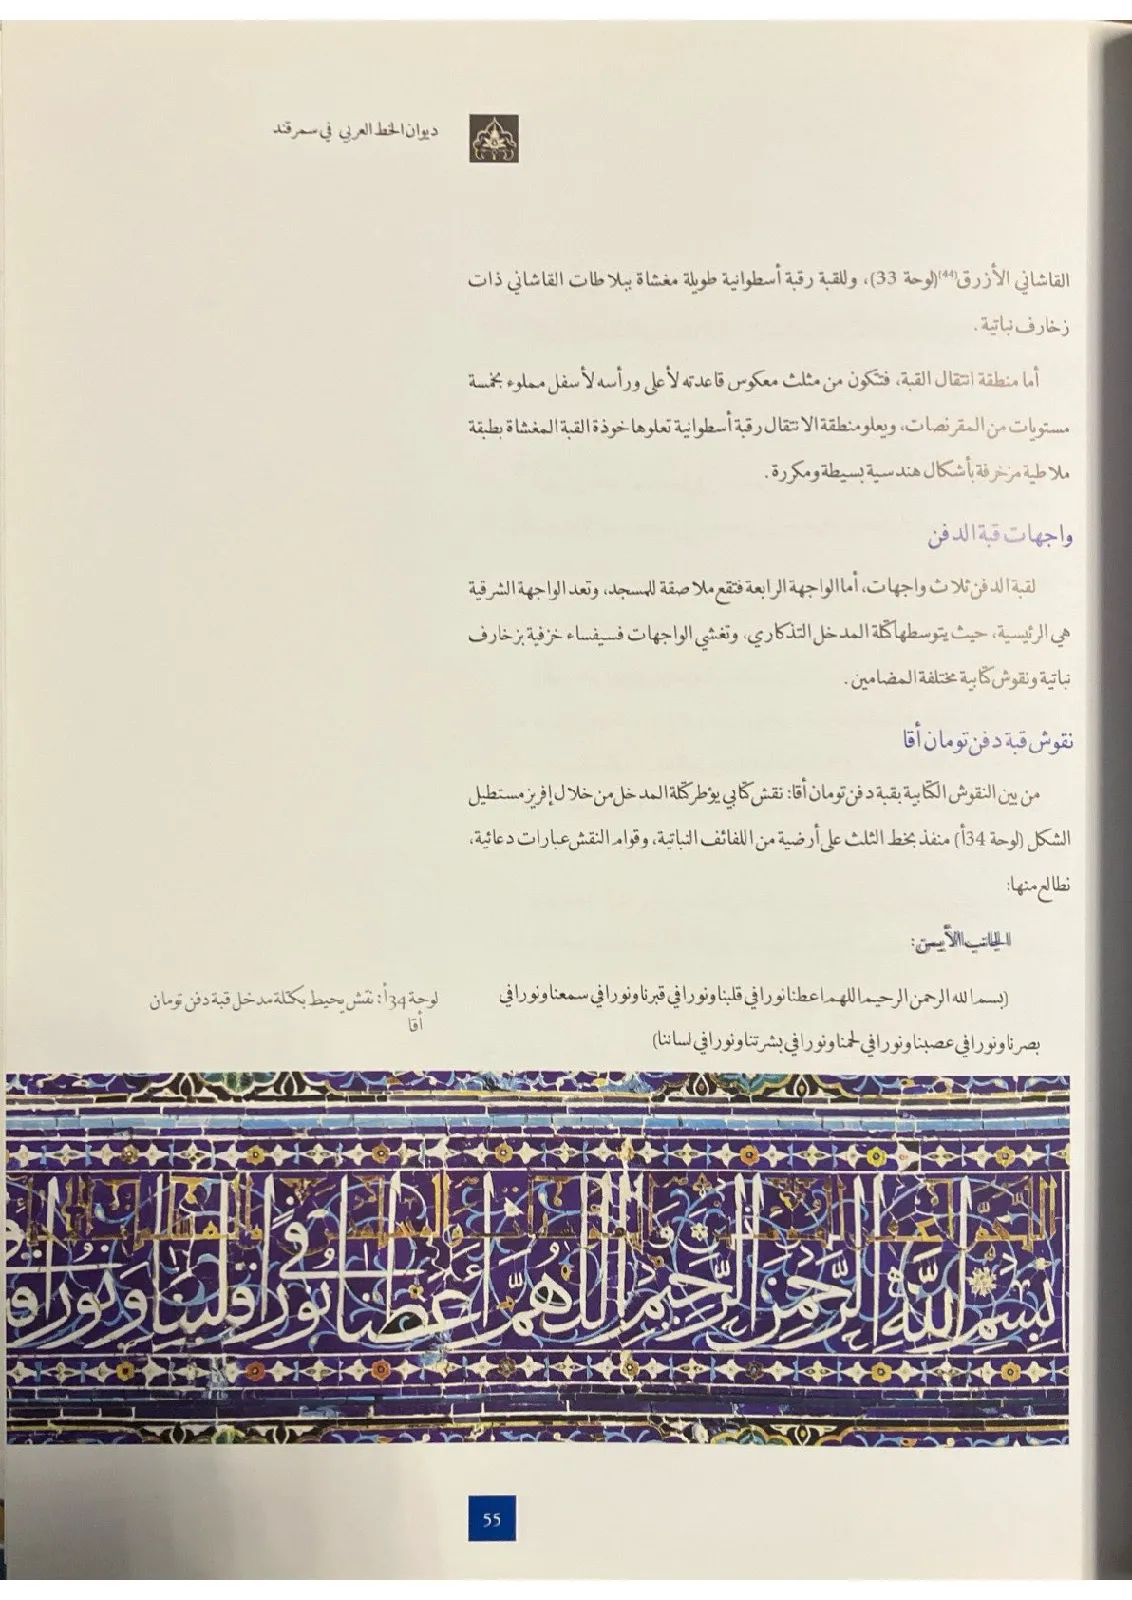 ديوان الخط العربي في سمرقند
القاشاني الأزرق(44)(لوحة 33)، وللقبة رقبة أسطوانية طويلة مغشاة ببلاطات القاشاني ذات
زخارف نباتية.
أما منطقة انتقال القبة، فتتكون من مثلث معكوس قاعدته لأعلى ورأسه لأسفل مملوء بخمسة
مستويات من المقرنصات، ويعلو منطقة الانتقال رقبة أسطوانية تعلوها خوذة القبة المغشاة بطبقة
ملاطية مزخرفة بأشكال هندسية بسيطة ومكررة.
واجهات قبة الدفن
لقبة الدفن ثلاث واجهات، أما الواجهة الرابعة فتقع ملاصقة للمسجد، وتعد الواجهة الشرقية
هي الرئيسية، حيث يتوسطها كتلة المدخل التذكاري، وتغشي الواجهات فسيفساء خزفية بزخارف
نباتية ونقوش كتابية مختلفة المضامين.
نقوش قبة دفن تومان أقا
من بين النقوش الكتابية بقبة دفن تومان أقا: نقش كتابي يؤطر كتلة المدخل من خلال إفريز مستطيل
الشكل (لوحة 34أ) منفذ بخط الثلث على أرضية من اللفائف النباتية، وقوام النقش عبارات دعائية،
نطالع منها:
الجانب الأيمن:
(بسم الله الرحمن الرحيم اللهم اعطنا نورا في قلبنا ونورا في قبرنا ونورا في سمعنا ونورا في
بصرنا ونورا في عصبنا ونورا في لحمنا ونورا في بشرتنا ونورا في لساننا)
لوحة 34أ: نقش يحيط بكتلة مدخل قبة دفن تومان
أقا
بسم الله الرحمن الرحيم اللهم اعطنا نورا في قلبنا ونورا
55